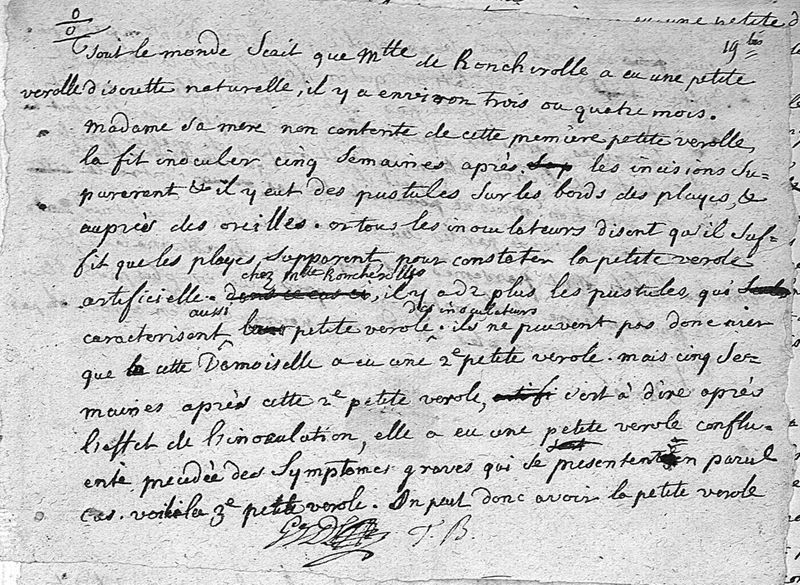 eu une petite d
19 bis
tout le monde Scait que Mlle de Roncherolle a eu une petite
verolle discrette naturelle, il y a environ trois ou quatre mois.
Madame sa mere non contente de cette premiere petite verolle,
la fit inoculer cinq semaines après. Sup les incisions su-
purerent & il y eut des pustules sur les bords des playes, &
auprès des oreilles. or tous les inoculateurs disent qu'il suf-
fit que les playes suppurent, pour constater la petite verole
chez Mlle Roncherolles
artificielle. dans ce cas ci, il y a de plus les pustules, qui
aussi des inoculateurs
caracterisent leurs petite verole. ils ne peuvent pas donc nier
que la cette Damoiselle a eu une 2e petite verole. mais cinq se-
maines après cette 2e petite verole, artifi c'est à dire après
l'effet de l'inoculation, elle a eu une petite verole conflu-
ente precedée des Symptomes graves qui se presentent en pareil
cas. voila la 3e petite verole. On peut donc avoir la petite verole
T. B